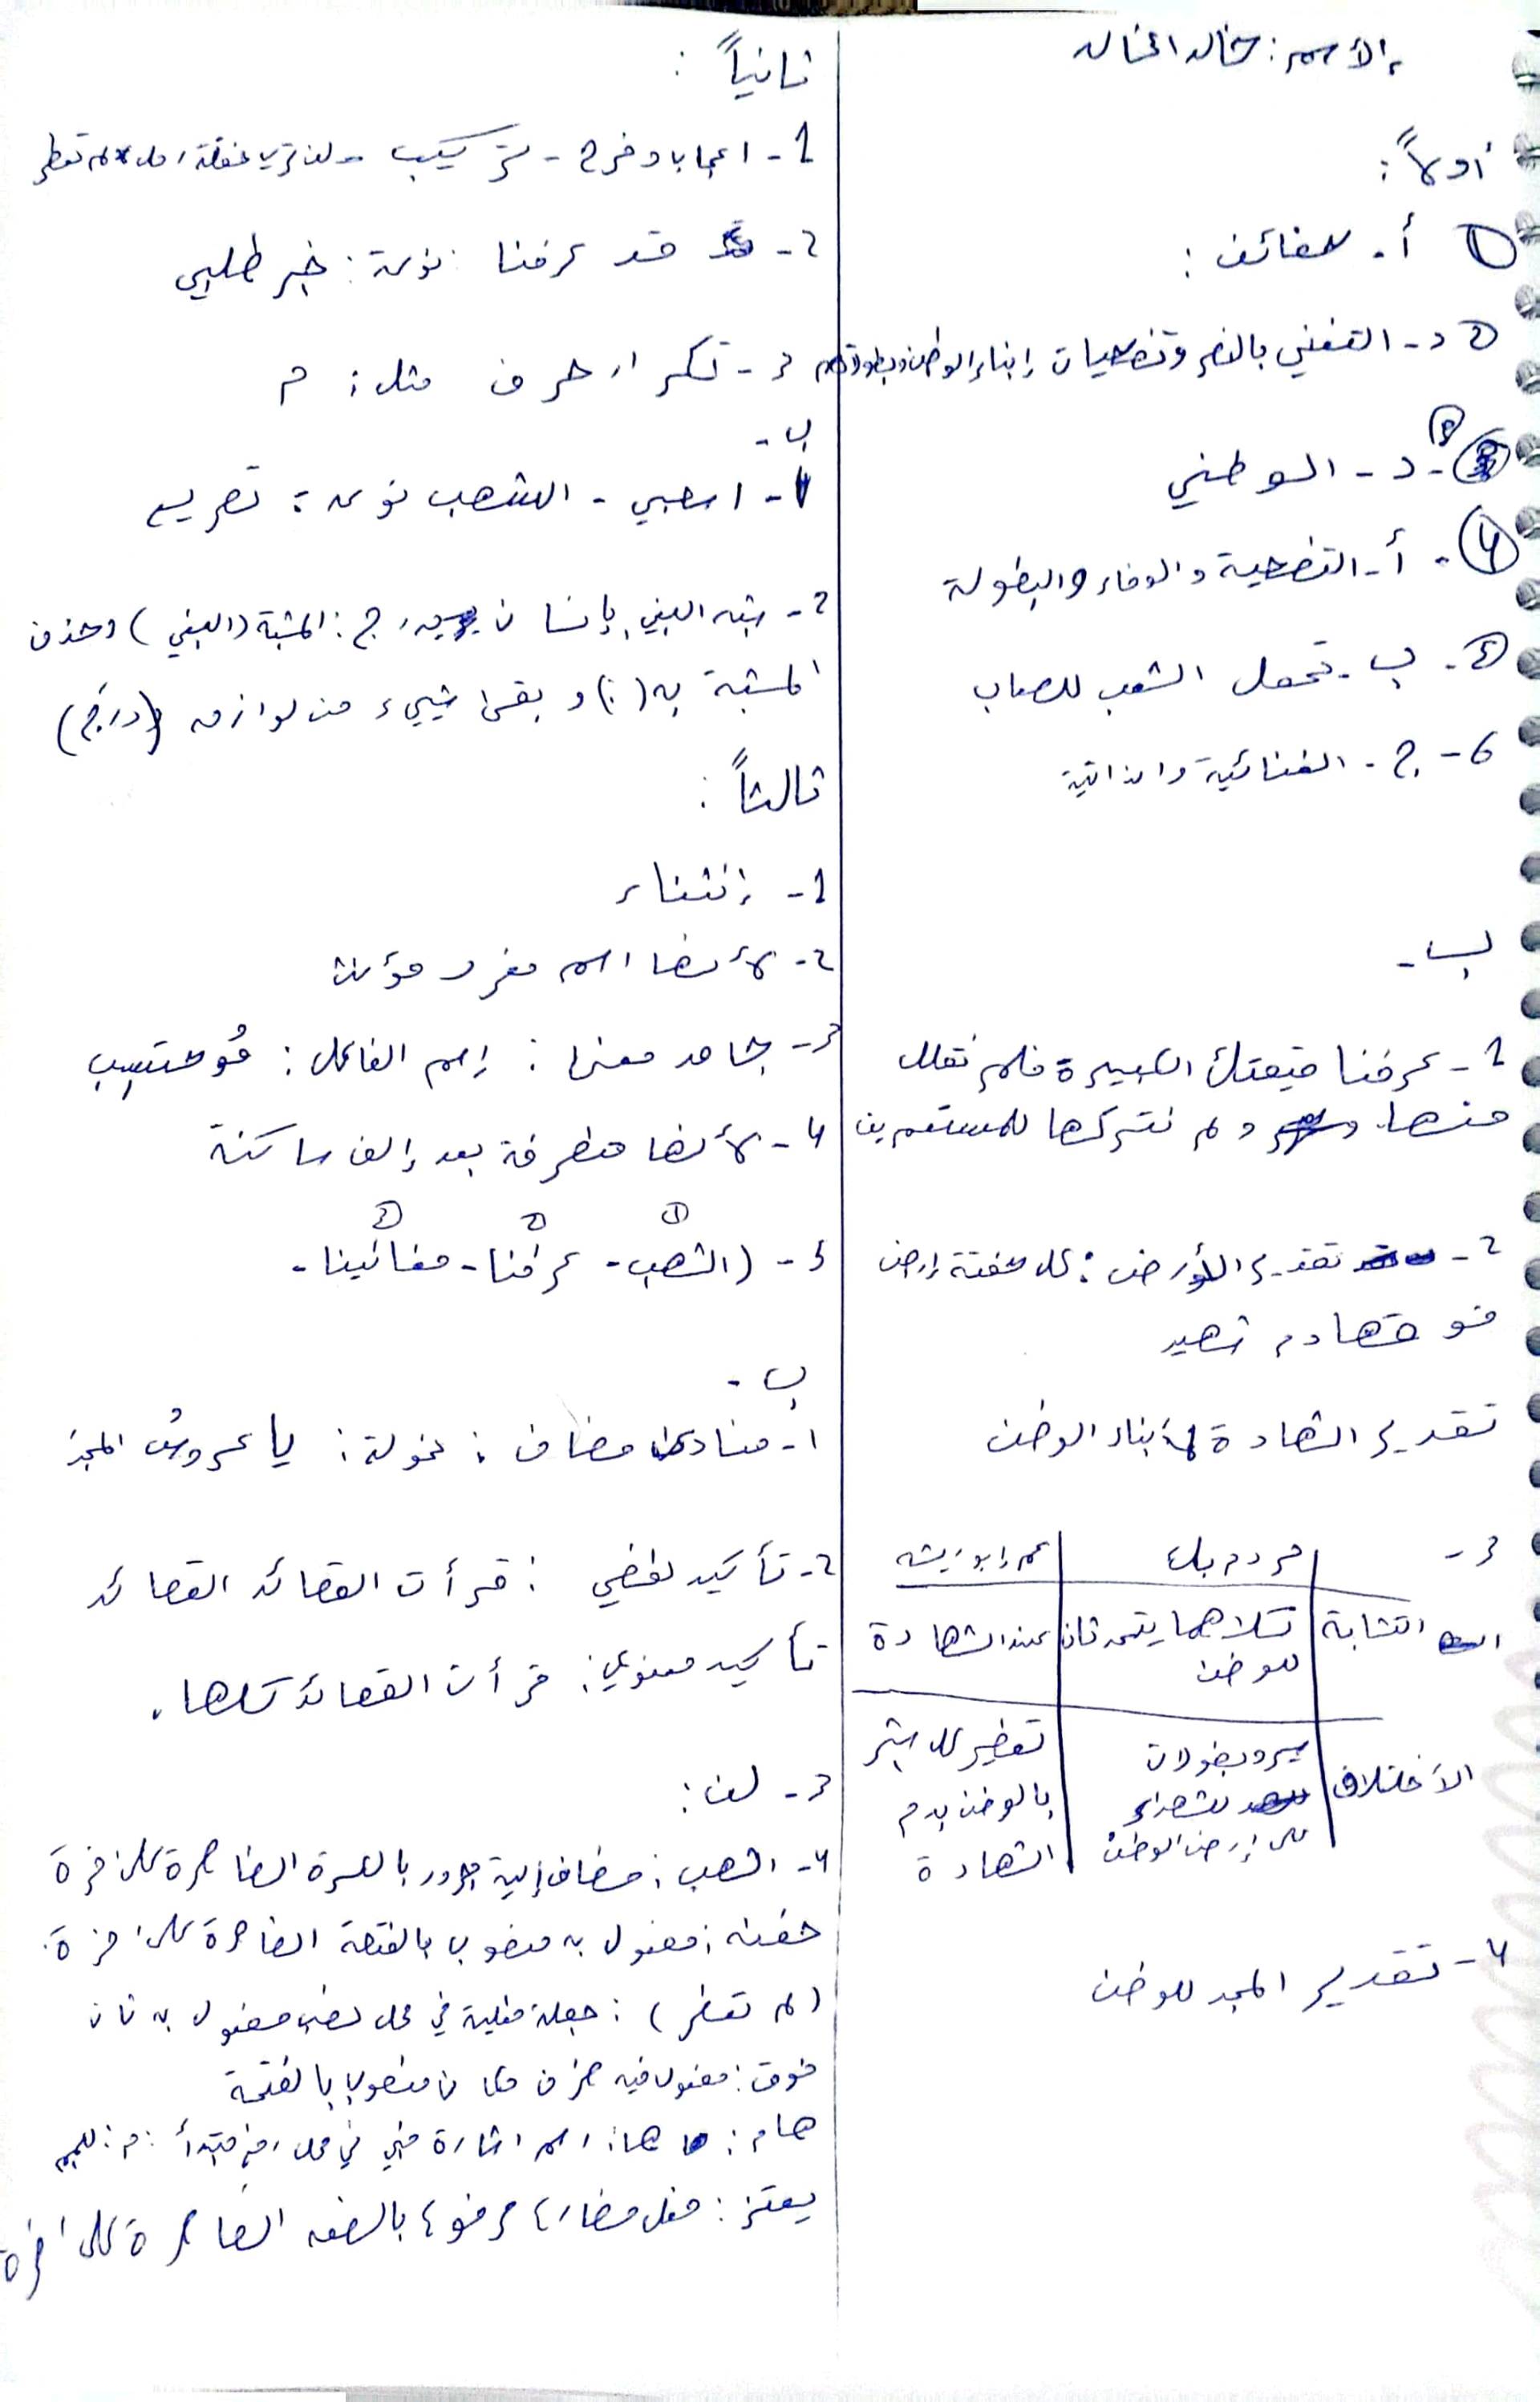 الأسم: خالد
أولاً:
① أ. للغائن:
② د- التغني بالنصر وتضحيات إبناء الوطن وبطولاتهم
③ - د - الوطني
④ - أ- التضحية والوفاء والبطولة
⑤ - ب - تحمل الشعب للصعاب
6 - ج - الغنائية والذاتية
ب -
1 - عرفنا قيمتك الكبيرة فلم نقلل
منها ولم نتركها للمستعمرين
2 - تقدير الأرض: كل حفنة إرض
فوقها دم شهيد
تقدير الشهادة لأبناء الوطن
3 -
مردم بك
عمر إبو ريشه
التشابة
كلاهما يتحدثان
للوطن
عند الشهادة
الأختلاف
سرد بطولات
لشهداء
على إرض الوطن
تعطير كل شبر
بالوطن بدم
الشهادة
4 - تقدير المجد للوطن
ثانياً:
1 - اعجاب وفرح - تركيب - لن تري حفنة رمل لم تعطر
2 - قد عرفنا: نوعة: خبر طلبي
3 - تكرار حرف مثل: م
ب -
1 - اسحبي - الشهب نوعه: تصريع
2 - شبه البغي بإنسان يدرج: المشبة (البغي) وحذف
المشبة به (:) و بقى شيء من لوازمه (درج)
ثالثاً:
1 - إنثناء
2 - لأنها اسم مفرد مؤنث
3 - جامد معنى: إسم الفاعل:
4 - لأنها متطرفة بعد إلف ساكنة
5 - (① الشهب - ② عرفنا - ③ مغانينا -
ب -
1 - منادى مضاف: نحولة: يا عروسُ المجد
2 - تأكيد لفضي: قرأت القصائد القصائد
تأكيد معنوي: قرأت القصائد كلها.
3 - لن:
4 - الشهب: مضاف إلية مجرور بالكسرة الضاهرة على اخرة
حفنه: مفعول به منصوب بالفتحة الضاهرة على اخرة.
(لم تعطر): جملة فعلية في محل نصب مفعول به ثان
فوق: مفعول فيه ضرف مكان منصوب بالفتحة
هام: ها: اسم اشارة مبني في محل رفع مبتدأ: م: للجمع
يعتز: فعل مضارع مرفوع بالضمه الضاهرة على اخرة